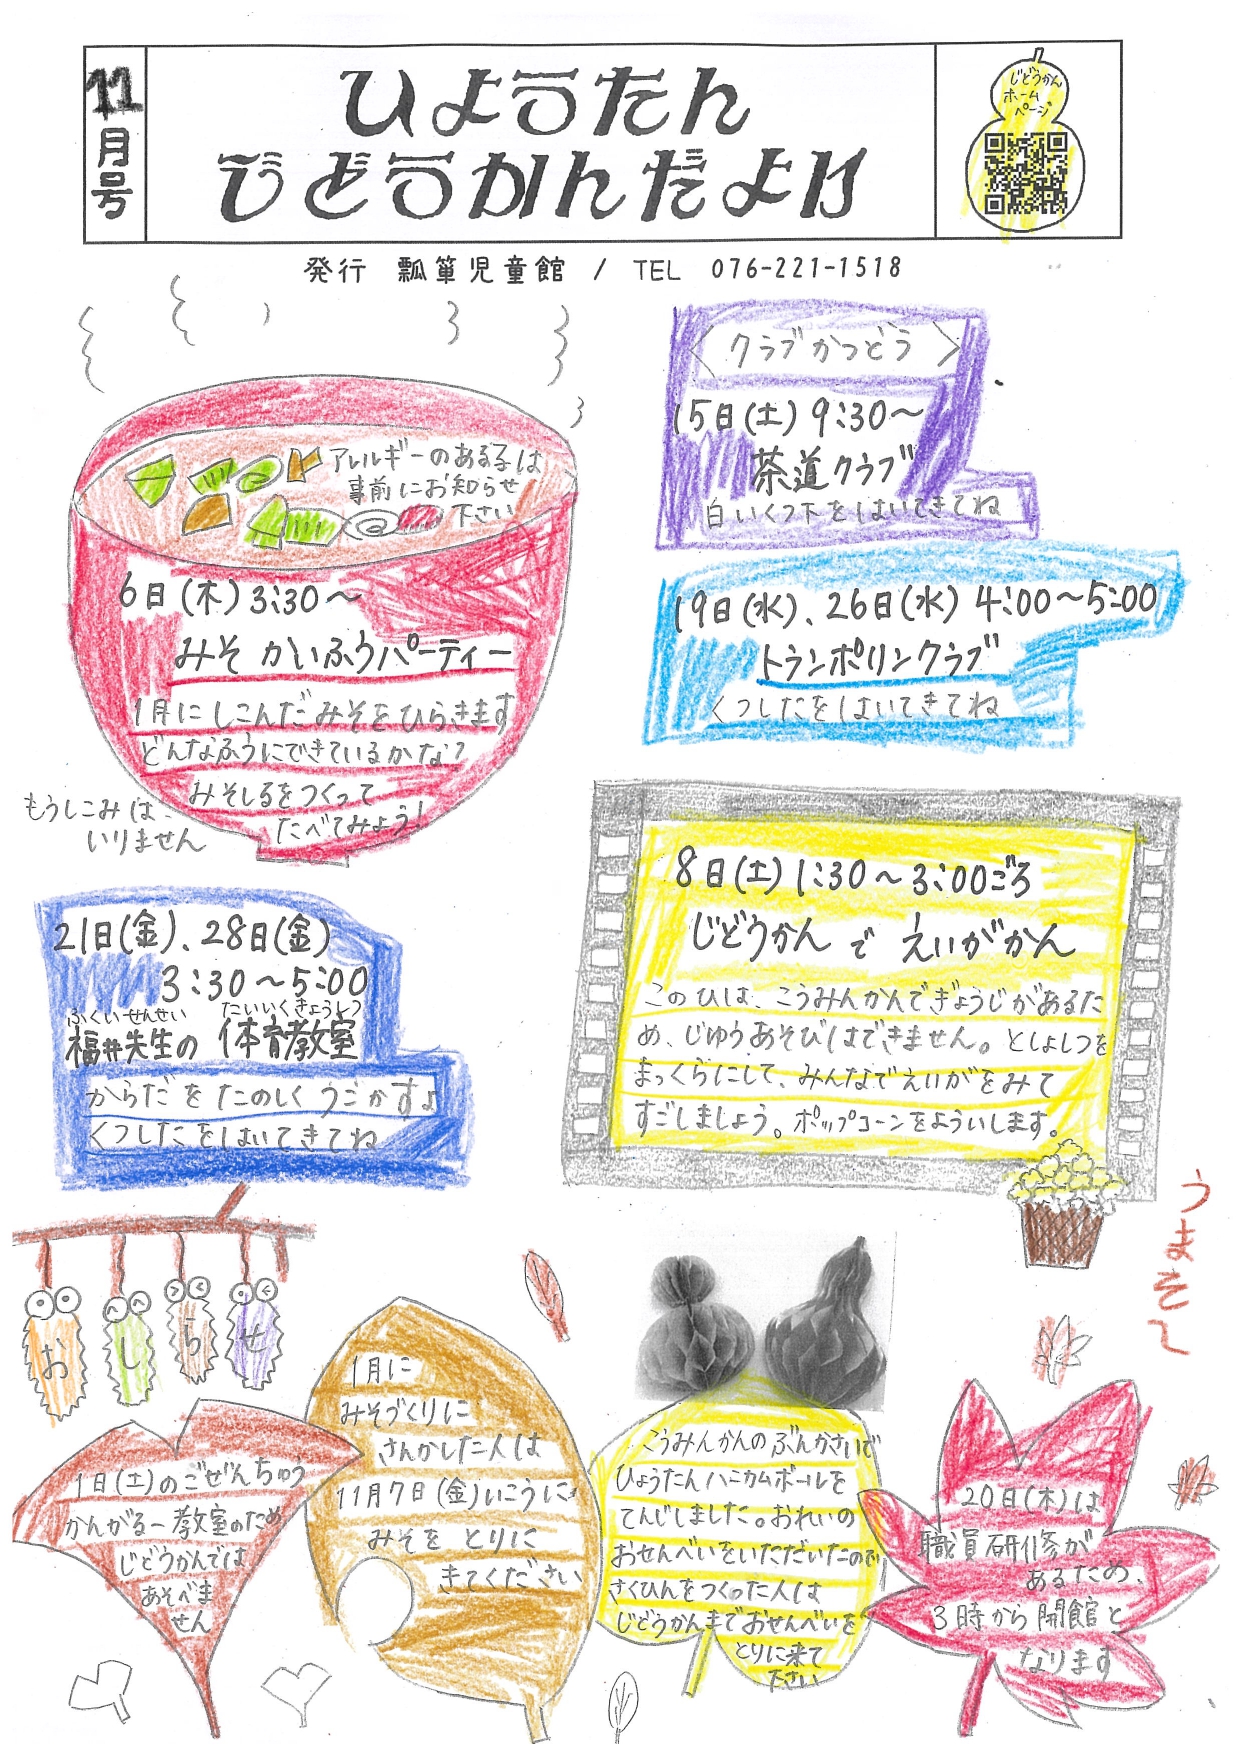 11月号
ひょうたん
じどうかんだより
じどうかん
ホーム
ページ
発行 瓢箪児童館 / TEL 076-221-1518
アレルギーのある子は
事前にお知らせ
下さい
6日(木) 3:30～
みそ かいふうパーティー
1月に しこんだみそをひらきます
どんなふうにできているかな?
みそしるをつくって
たべてみよう!
もうしこみは、
いりません
〈 クラブかつどう 〉
15日(土) 9:30～
茶道クラブ
白いくつ下をはいてきてね
19日(水)、26日(水) 4:00～5:00
トランポリンクラブ
くつしたをはいてきてね
8日(土) 1:30～3:00ごろ
じどうかん で えいがかん
このひは、こうみんかんでぎょうじがあるた
め、じゆうあそびはできません。としょしつを
まっくらにして、みんなでえいがをみて
すごしましょう。ポップコーンをよういします。
うまそ～
21日(金)、28日(金)
3:30～5:00
ふくいせんせい たいいくきょうしつ
福井先生の 体育教室
からだを たのしく うごかすよ
くつしたをはいてきてね
おしらせ
1日(土)のごぜんちゅう
かんがるー教室のため
じどうかんでは
あそべま
せん
1月に
みそづくりに
さんかした人は
11月7日(金)いこうに
みそを とりに
きてください
こうみんかんのぶんかさいで
ひょうたんハニカムボールを
てんじしました。おれいの
おせんべいをいただいたので
さくひんをつくった人は
じどうかんまでおせんべいを
とりに来て
下さい
20日(木)は
職員研修が
あるため、
3時から開館と
なります